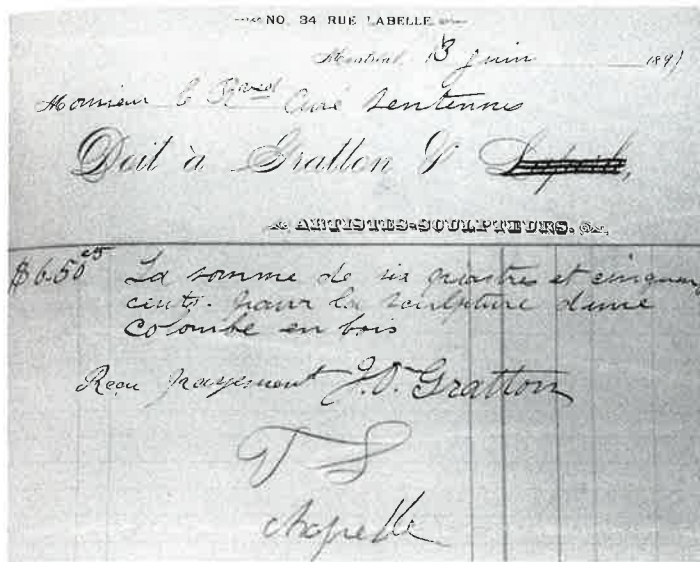 NO. 34 RUE LABELLE
Montréal, 13 juin 1891
Monsieur le Rved Curé Sentennes
Doit à Gratton &
ARTISTES-SCULPTEURS.
$6.50cts La somme de six piastres et cinquante
cents. pour la sculpture d'une
Colombe en bois
Reçu payement J.O. Gratton
chapelle